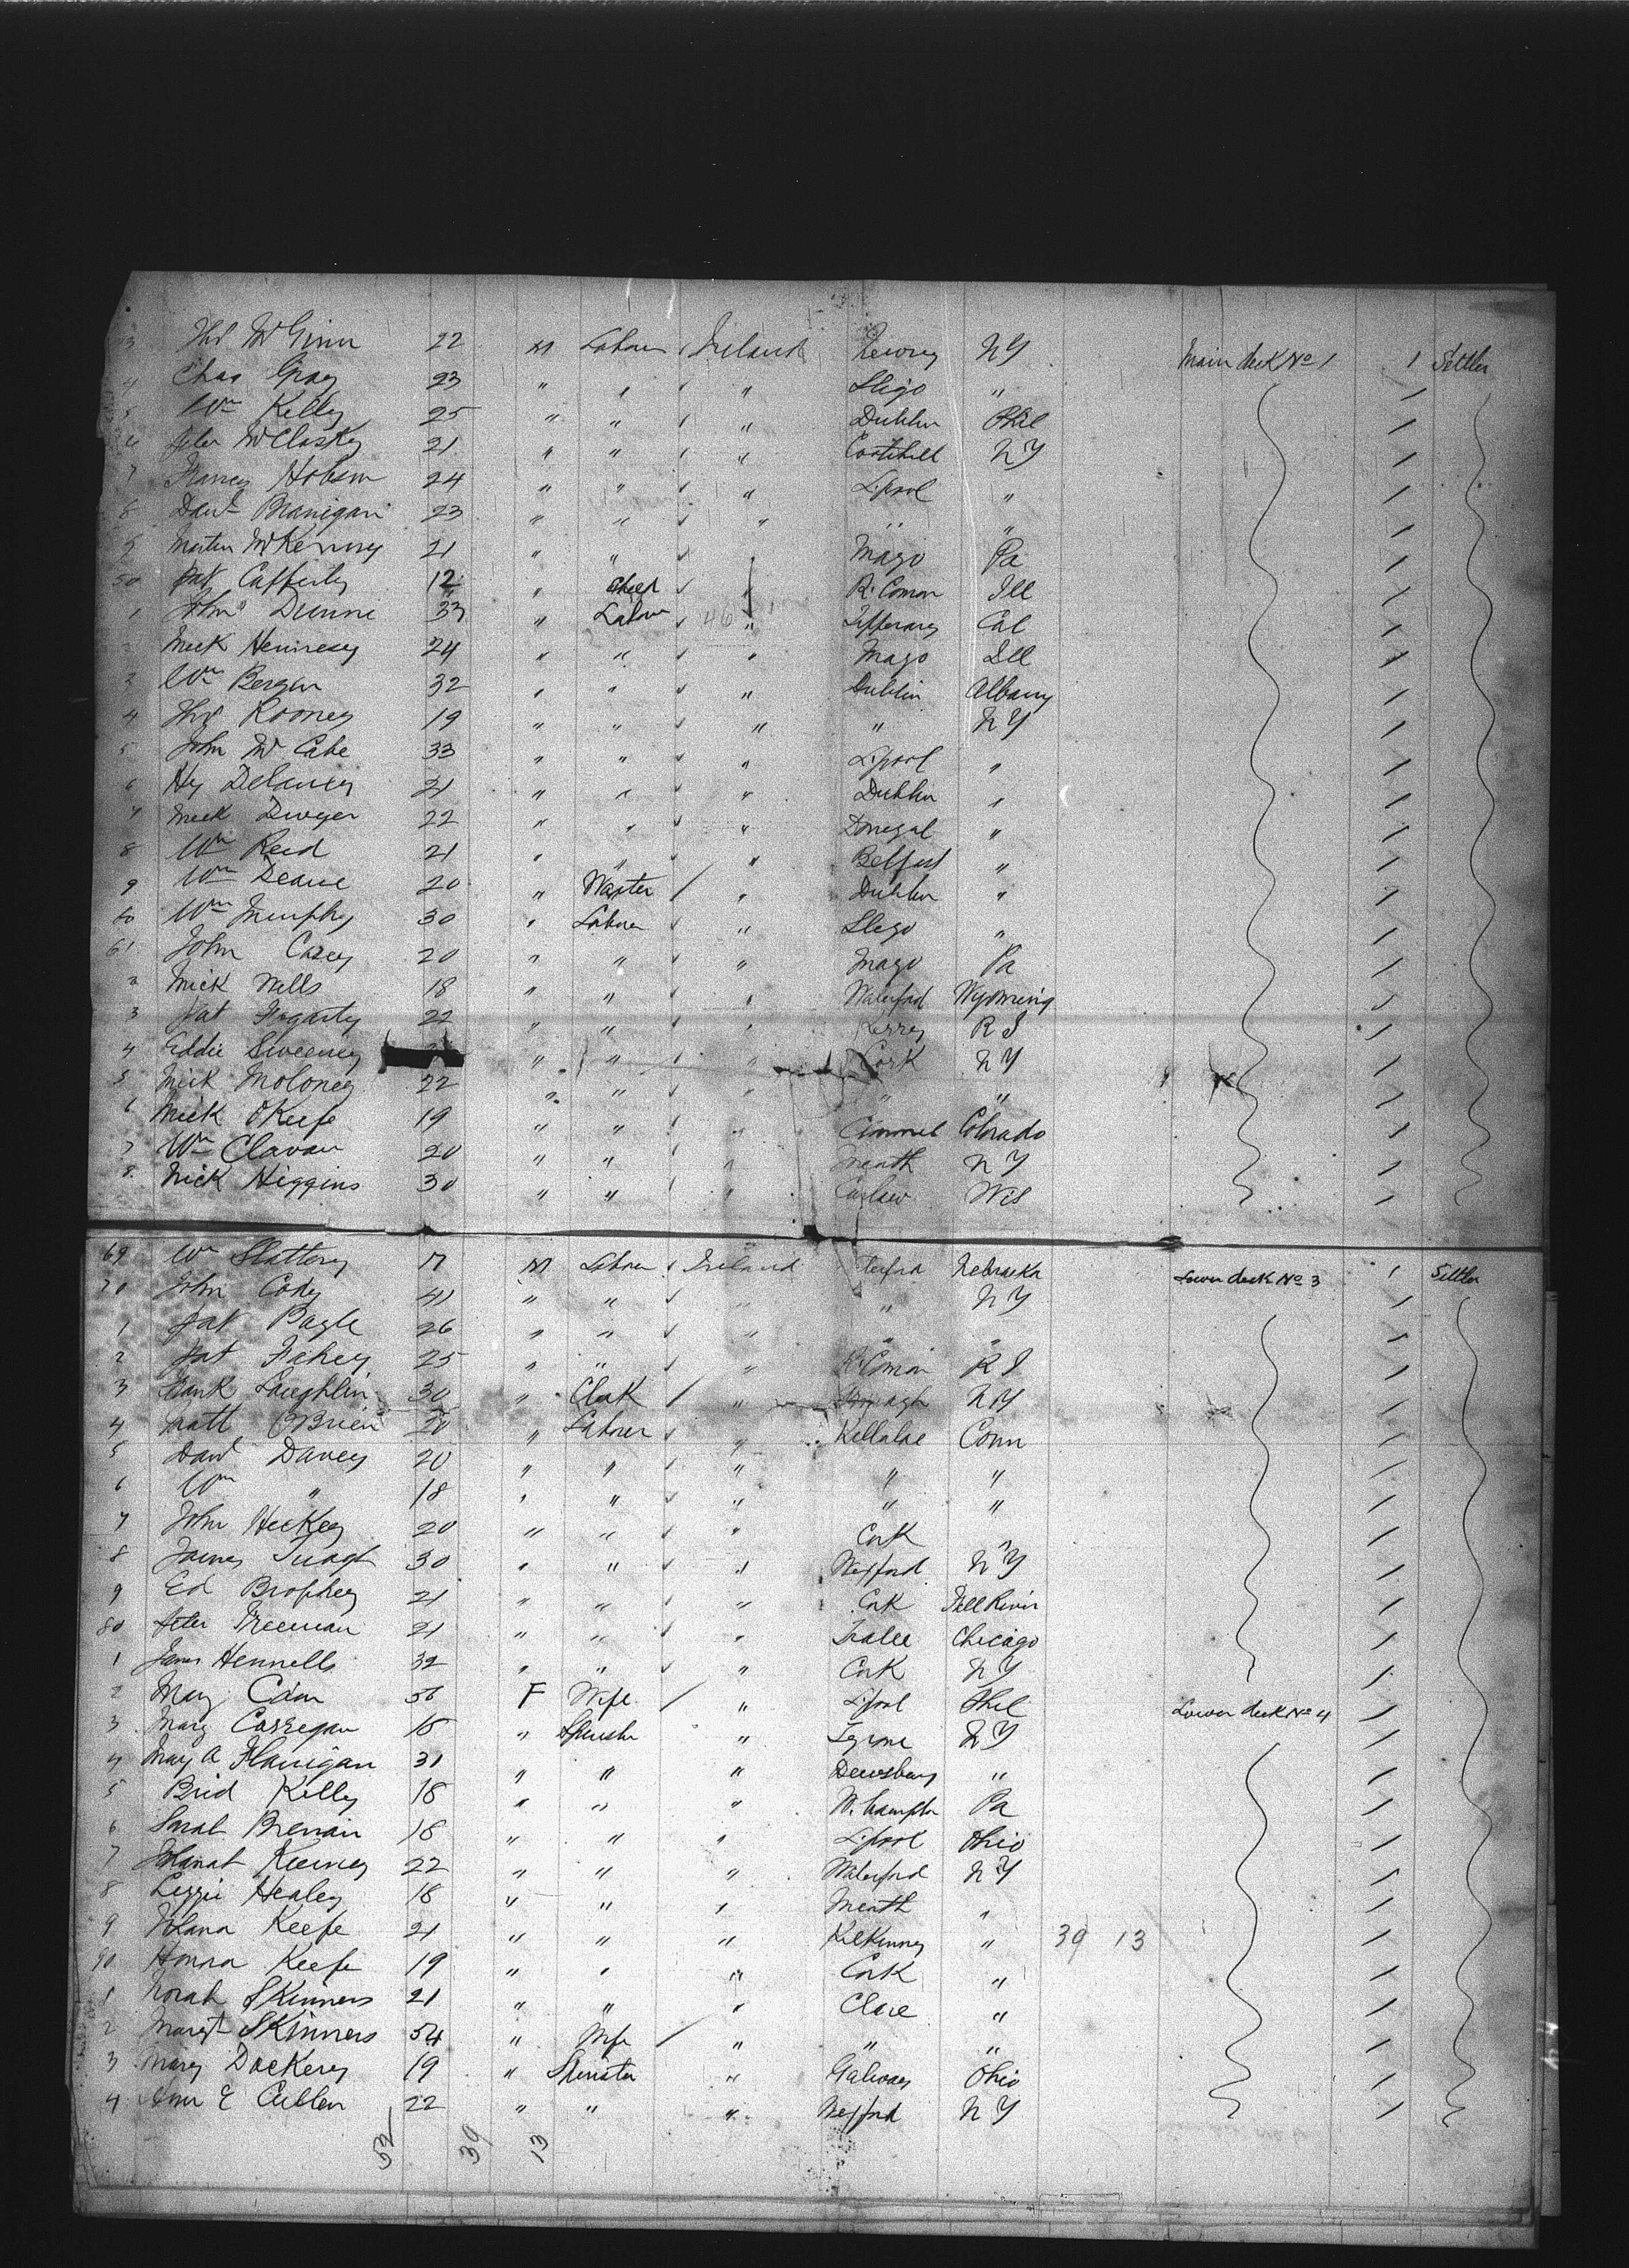 3 Thos McGinn 22 M Labourer Ireland Newry NY Main deck No 1 1 Settler
4 Chas Gray 23 " " " Sligo " 1
5 Wm Kelly 25 " " " Dublin Phil 1
6 Peter McClosky 21 " " " Cootehill NY 1
7 Francis Hobson 24 " " " L.pool " 1
8 Davd Branigan 23 " " " " " 1
9 Martin McKenny 21 " " " Mayo Pa 1
50 Pat Cafferty 12 " Child " R.Comon Ill 1
1 John Dunne 33 " Labour 46 " Tipperary Cal 1
2 Mick Hennesey 24 " " " Mayo Ill 1
3 Wm Bergin 32 " " " Dublin Albany 1
4 Thos Rooney 19 " " " " NY 1
5 John McCabe 33 " " " L.pool " 1
6 Hy Delaney 21 " " " Dublin " 1
7 Mick Dwyer 22 " " " Donegal " 1
8 Wm Reid 21 " " " Belfast " 1
9 Wm Deane 20 " Waiter " Dublin " 1
60 Wm Murphy 30 " Labourer " Sligo " 1
61 John Casey 20 " " " Mayo Pa 1
2 Mick Wells 18 " " " Waterford Wyoming 1
3 Pat Fogarty 22 " " " Kerry R I 1
4 Eddie Sweeney " " " Cork NY 1
5 Mick Moloney 22 " " " " " 1
6 Mick OKeefe 19 " " " Colorado 1
7 Wm Clavan 20 " " " Meath NY 1
8 Mick Higgins 30 " " " Carlow Wis 1
69 Wm Slattery 17 M Labourer Ireland Nebraska Lower deck No 3 1 Settler
70 John Cody 41 " " " " NY 1
1 Pat Bagle 26 " " " " " 1
2 Pat Fahey 25 " " " R.Comon R I 1
3 Frank Laughlin 30 " Clerk " NY 1
4 Matt OBrien 20 " Labourer " Killaloe Conn 1
5 Davd Davey 20 " " " " " 1
6 Wm " 18 " " " " " 1
7 John Hickey 20 " " " Cork " 1
8 James 30 " " " Wexford NY 1
9 Ed Brophey 21 " " " Cork Fall River 1
80 Peter Freeman 21 " " " Tralee Chicago 1
1 James Hennells 32 " " " Cork NY 1
2 Mary Cain 56 F Wife " L.pool Phil Lower deck No 4 1
3 Mary Corregan 18 " Spinster " Tyrone NY 1
4 Mary A Flanigan 31 " " " Dewsbury " 1
5 Brid Kelly 18 " " " W.hampton Pa 1
6 Sarah Brenan 18 " " " L.pool Ohio 1
7 Johanah Keeney 22 " " " Waterford NY 1
8 Lizzie Healey 18 " " " Meath " 1
9 Johana Keefe 21 " " " Kilkenny " 39 13 1
90 Honna Keefe 19 " " " Cork " 1
1 Norah Skinners 21 " " " Clare " 1
2 Margt Skinners 54 " Wife " " " 1
3 Mary Dockery 19 " Spinster " Galway Ohio 1
4 Ann E Cullen 22 " " " Wexford NY 1
52 39 13